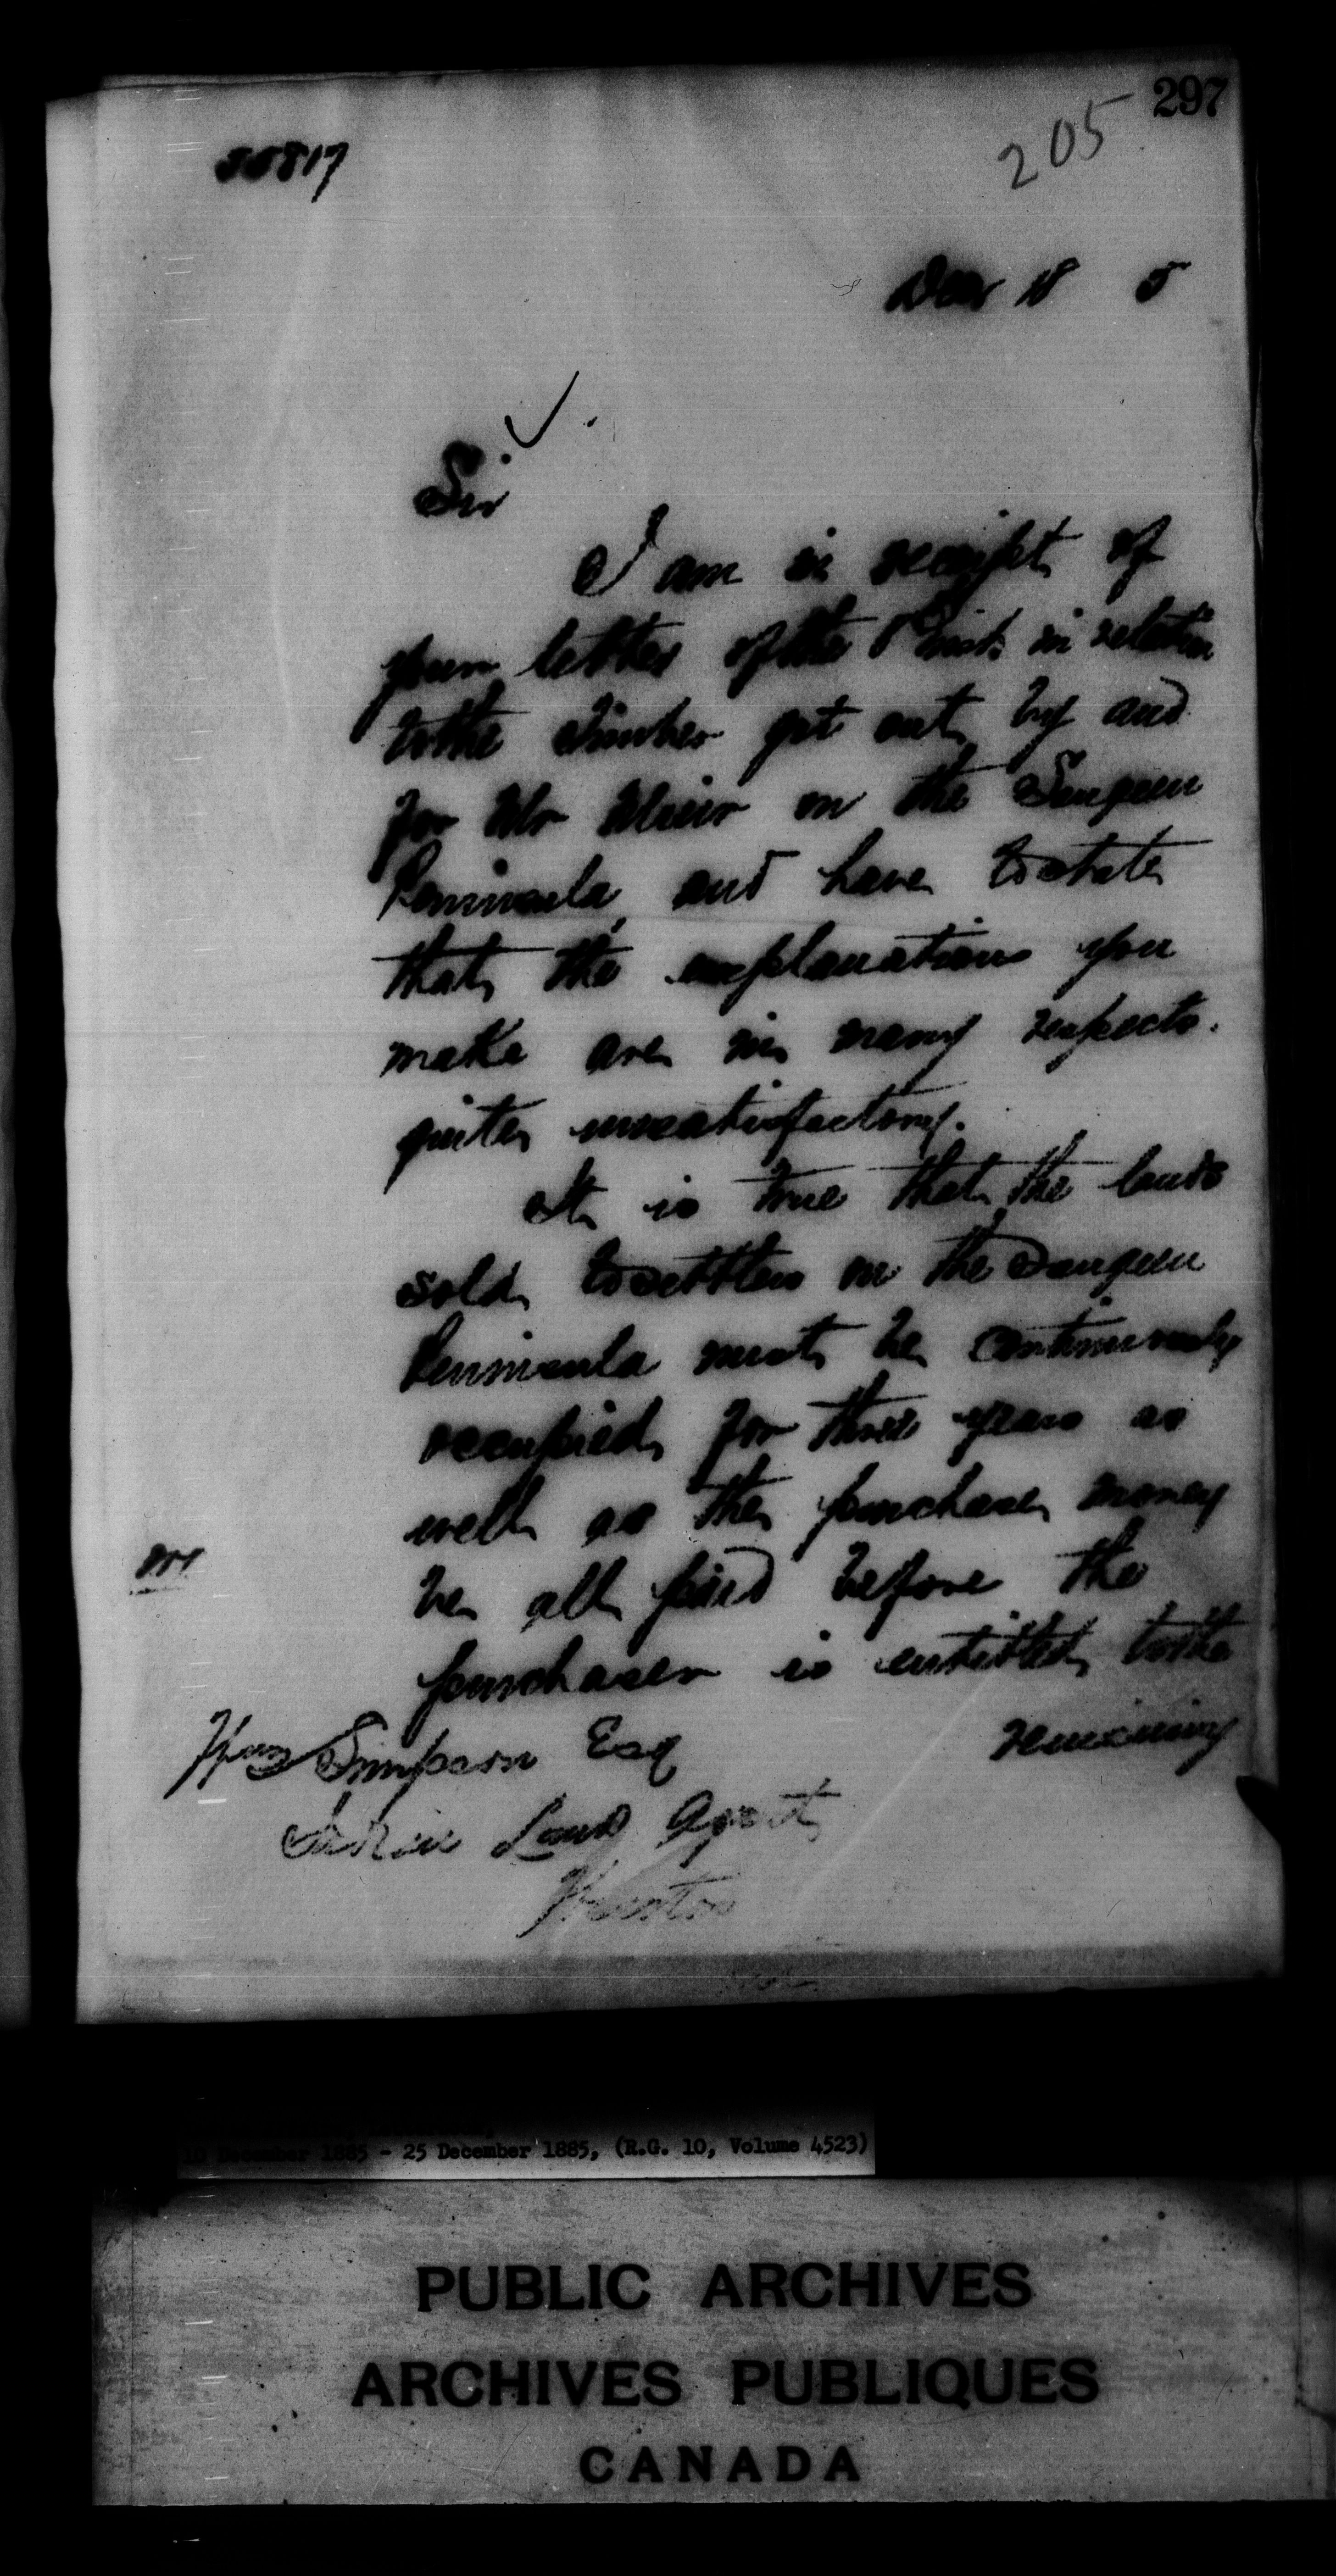 297
205
55817
Decr 18 5
Sir
I am in receipt of
your letter of the inst. in relation
to the timber got out by and
for Mr on the Saugeen
Peninsula, and have to state
that the explanations you
make are in many respects
quite unsatisfactory.
It is true that the lands
sold to settlers in the Saugeen
Peninsula must be continuously
occupied for three years as
well as the purchase money
be all paid before the
purchaser is entitled to the
remaining
Wm Simpson Esq
Indian Land Agent
Wiarton
10 December 1885 - 25 December 1885, (R.G. 10, Volume 4523)
PUBLIC ARCHIVES
ARCHIVES PUBLIQUES
CANADA